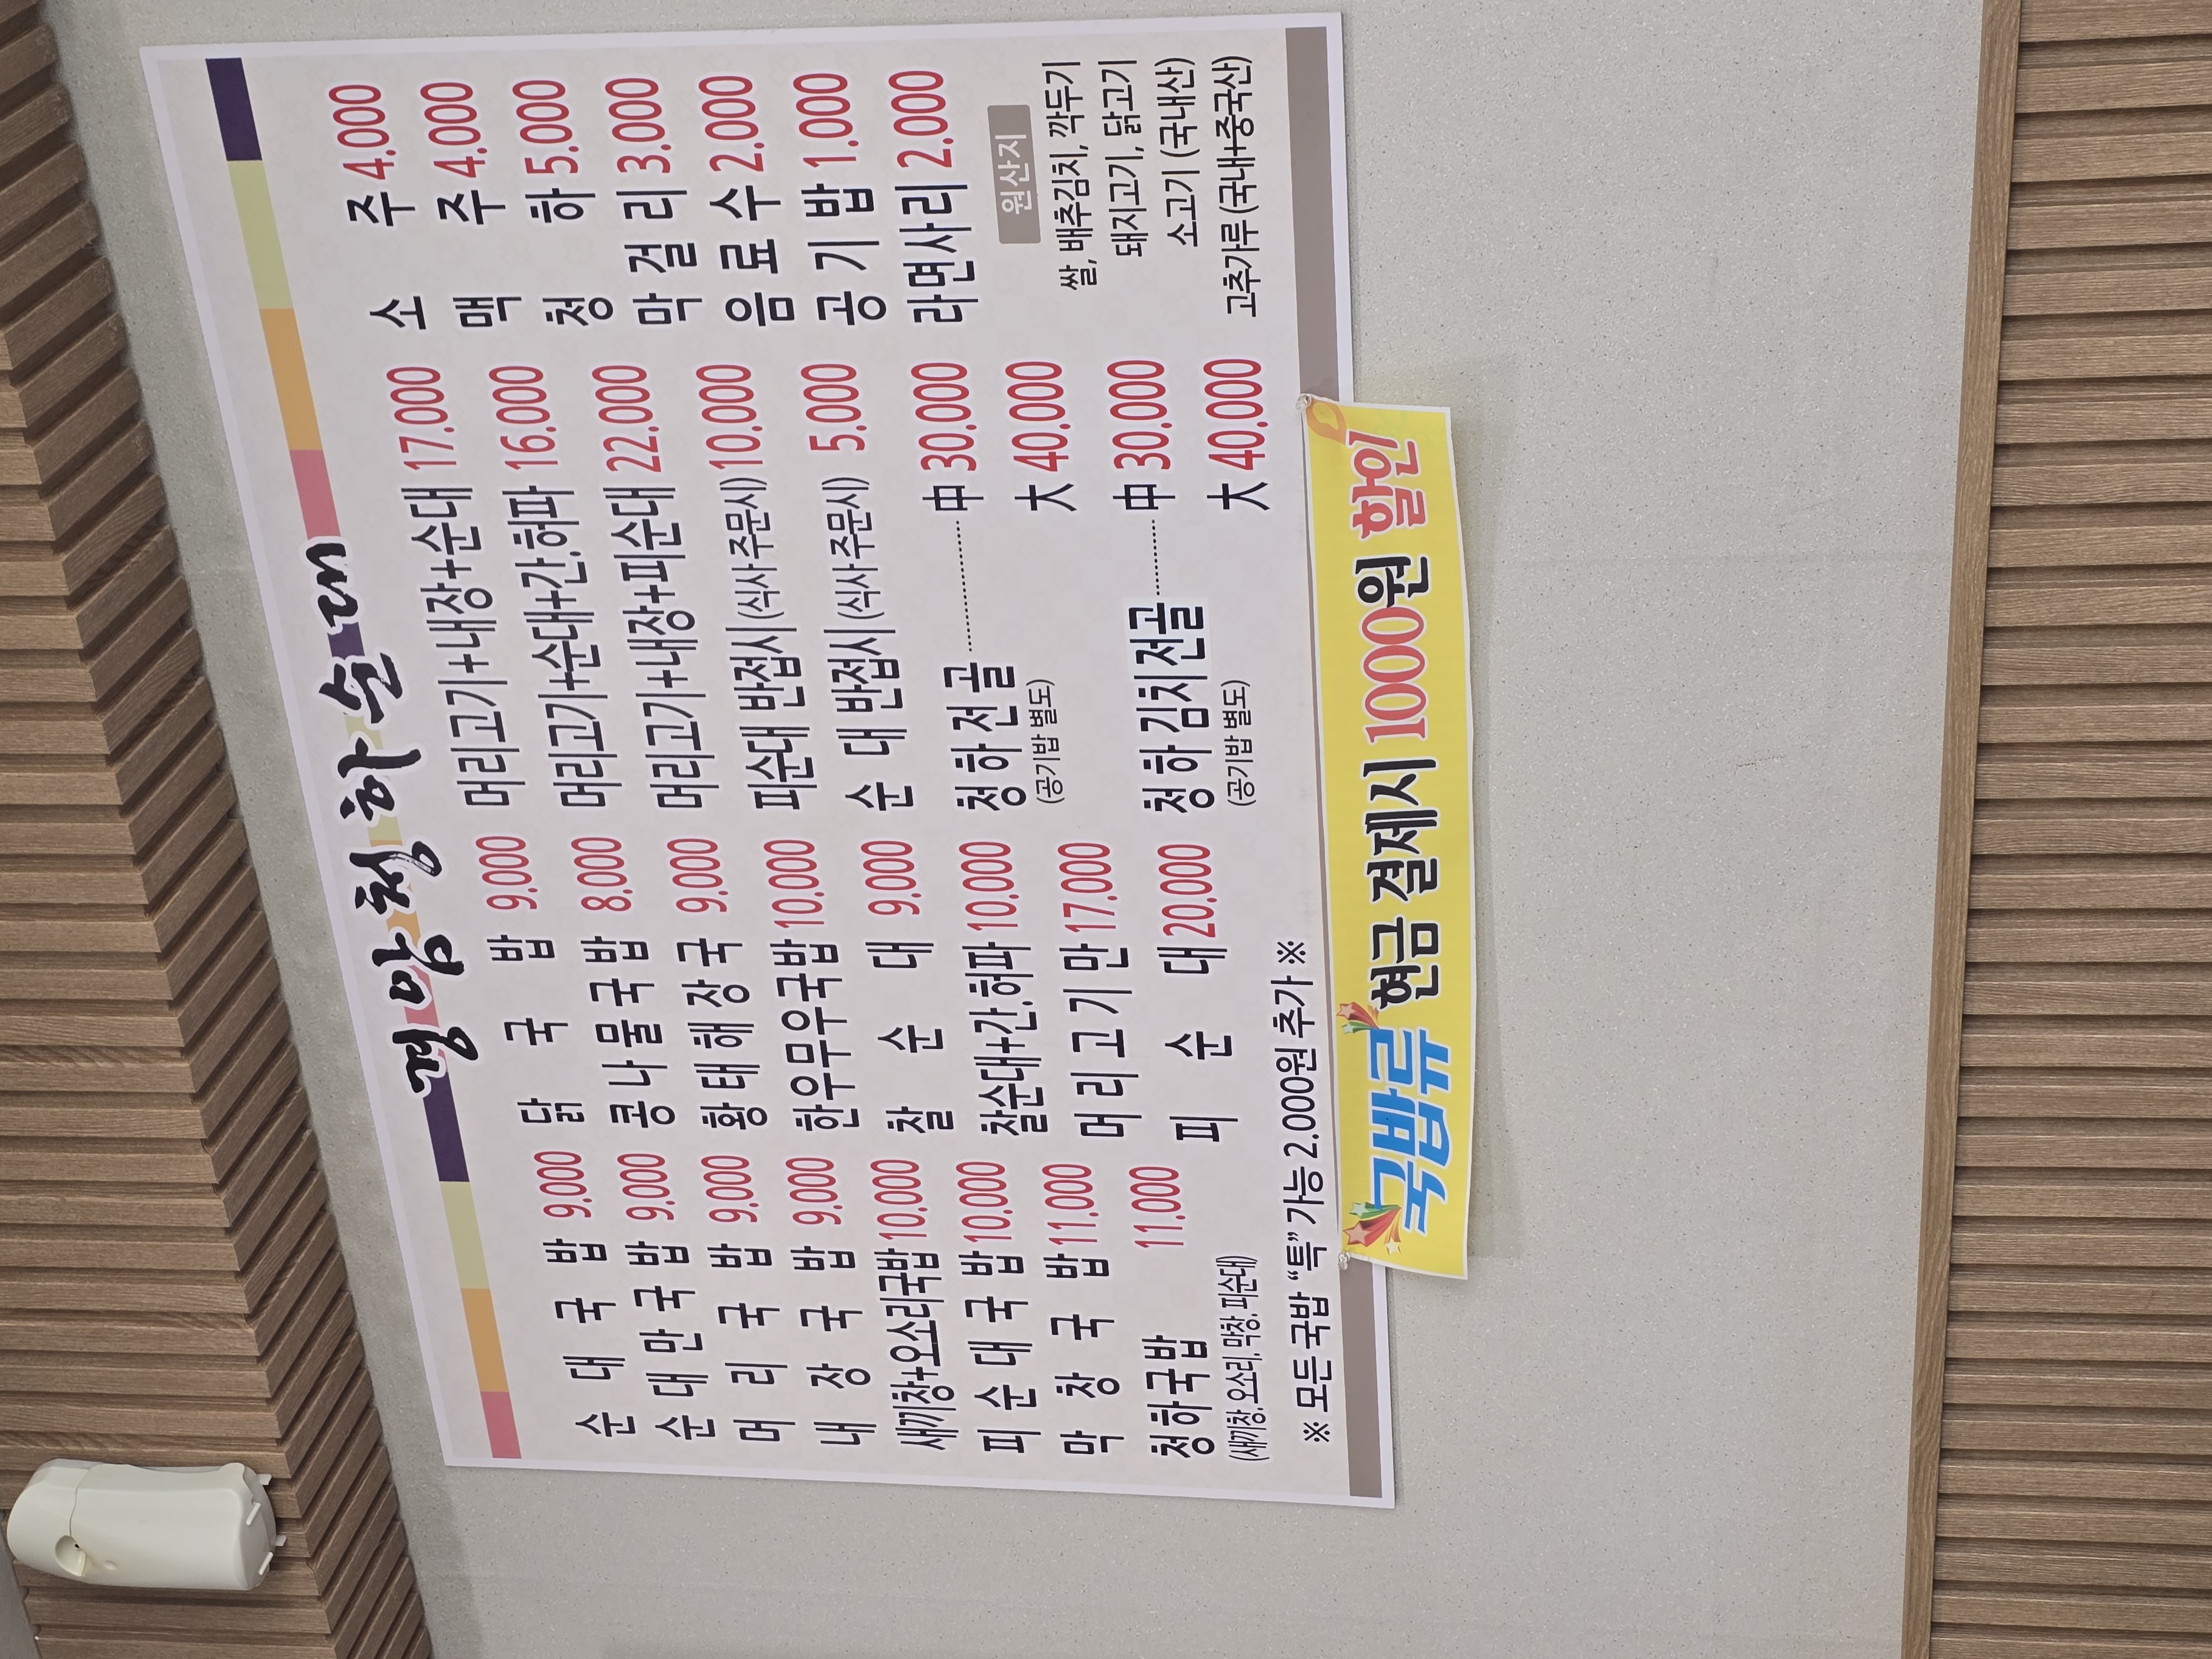 경암청하순대
순대국밥 9.000
순대만국밥 9.000
머리국밥 9.000
내장국밥 9.000
새끼창+오소리국밥 10.000
피순대국밥 10.000
막창국밥 11.000
청하국밥 11.000
(새끼창, 오소리, 막창, 피순대)
닭국밥 9.000
콩나물국밥 8.000
황태해장국 9.000
한우무우국밥 10.000
찰순대 9.000
찰순대+간.허파 10.000
머리고기만 17.000
피순대 20.000
※ 모든 국밥 “특” 가능 2.000원 추가 ※
머리고기+내장+순대 17.000
머리고기+순대+간.허파 16.000
머리고기+내장+피순대 22.000
피순대 반접시 (식사 주문시) 10.000
순대 반접시 (식사 주문시) 5.000
청하전골 ········ 中 30.000
(공기밥 별도) 大 40.000
청하김치전골 ········ 中 30.000
(공기밥 별도) 大 40.000
소주 4.000
맥주 4.000
청하 5.000
막걸리 3.000
음료수 2.000
공기밥 1.000
라면사리 2.000
원산지
쌀, 배추김치, 깍두기
돼지고기, 닭고기
소고기 (국내산)
고추가루 (국내+중국산)
국밥류 현금 결제시 1000원 할인